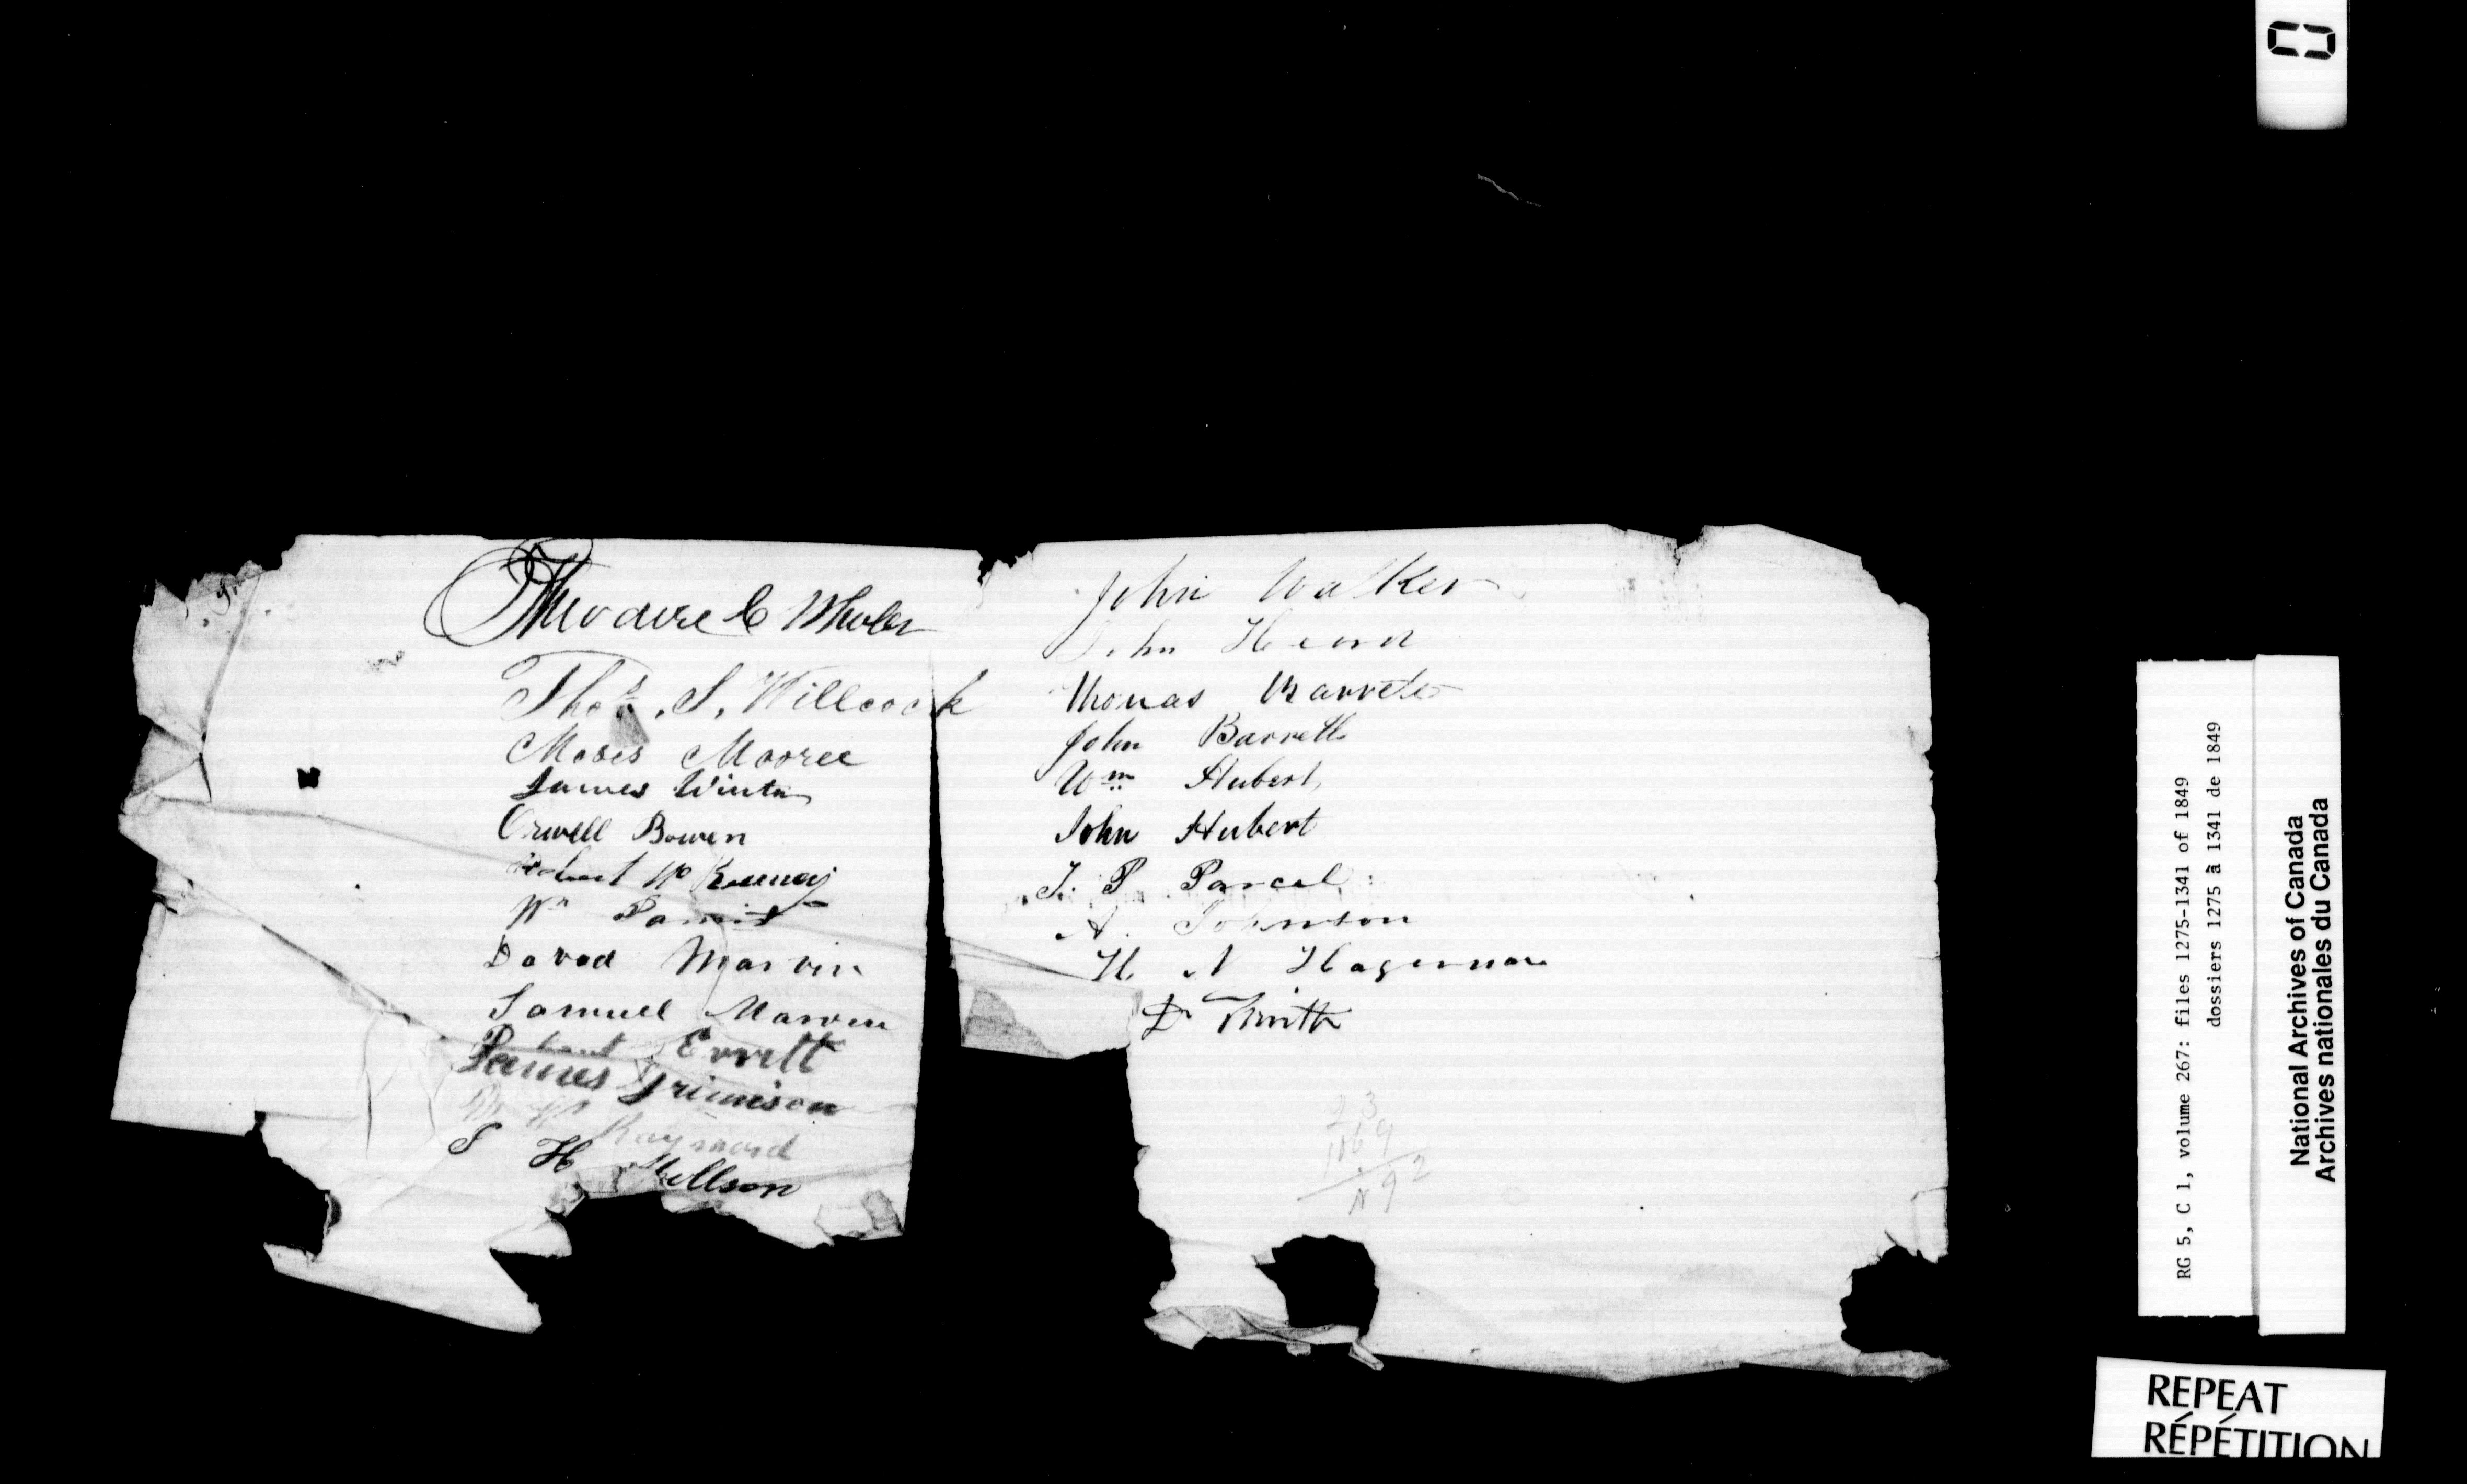 Theodore C Wheler
Thos. S. Willcock
Moses Mooree
James Winter
Orwell Bowen
Robert Mc Kenney
Wm
David Marvin
Samuel Marvin
Robert Evritt
James Grimison
W Raymond
S H Willson
John Walker
John Heard
Thomas Barrete
John Barrett
Wm Hubert
John Hubert
J. P Parcel
A. Johnson
H N Hagerman
D Smith
23
1169
92
RG 5, C 1, volume 267: files 1275-1341 of 1849
dossiers 1275 à 1341 de 1849
National Archives of Canada
Archives nationales du Canada
REPEAT
RÉPÉTITION